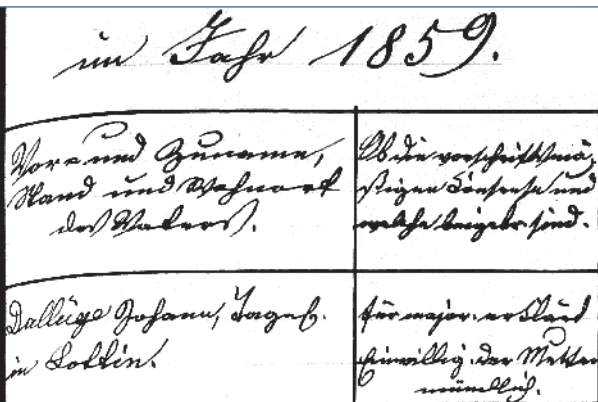 im Jahr 1859.
Vor= und Zuname,
Stand und Wohnort
des Vaters.
Ob die vorschriftsmä-
ßigen Consense und
welche beigebr. sind.
Dallüge Johann, Tagel.
in Lottin.
für major. erklärt
Einwillig. der Mutter
mündlich.